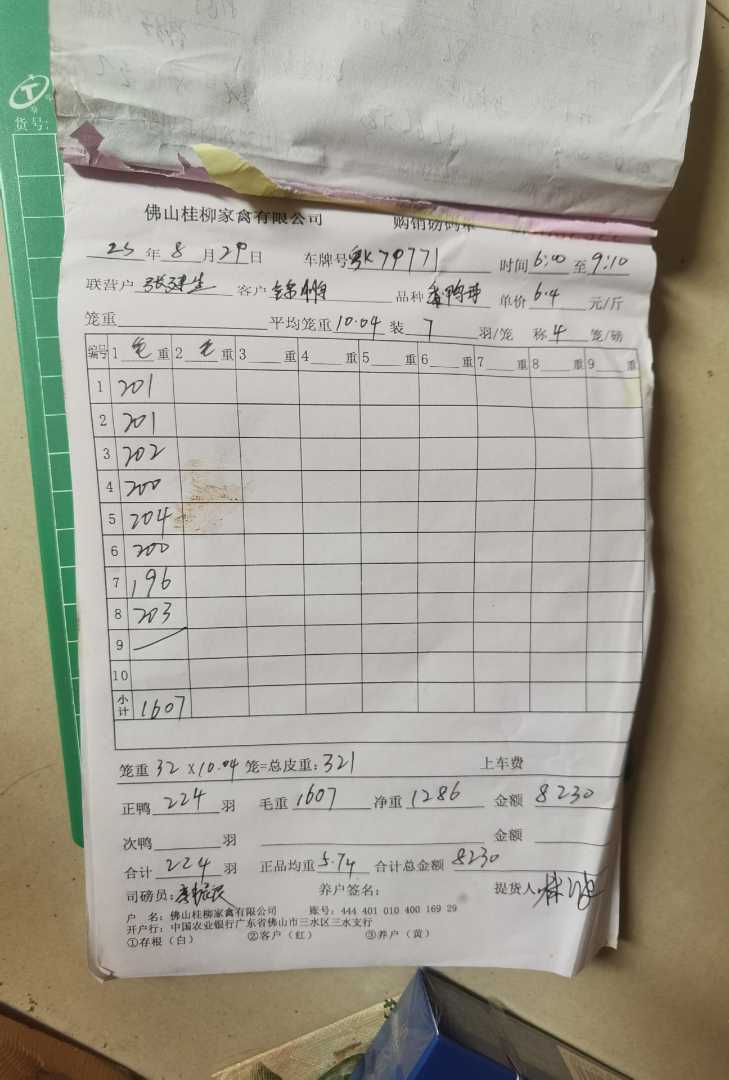 货号:
佛山桂柳家禽有限公司 购销磅码单
25 年 8 月 29 日 车牌号 粤K79771 时间 6:00 至 9:10
联营户 张建生 客户 品种 单价 6.4 元/斤
笼重 平均笼重 10.04 装 7 羽/笼 称 4 笼/磅
编号 1 毛 重 2 毛 重 3 重 4 重 5 重 6 重 7 重 8 重 9 重
1 201
2 201
3 202
4 200
5 204
6 200
7 196
8 203
9
10
小计 1607
笼重 32 x10.04 笼=总皮重: 321 上车费
正鸭 224 羽 毛重 1607 净重 1286 金额 8230
次鸭 羽 金额
合计 224 羽 正品均重 5.74 合计总金额 8230
司磅员: 养户签名: 提货人
户 名: 佛山桂柳家禽有限公司 账号: 444 401 010 400 169 29
开户行: 中国农业银行广东省佛山市三水区三水支行
①存根（白） ②客户（红） ③养户（黄）